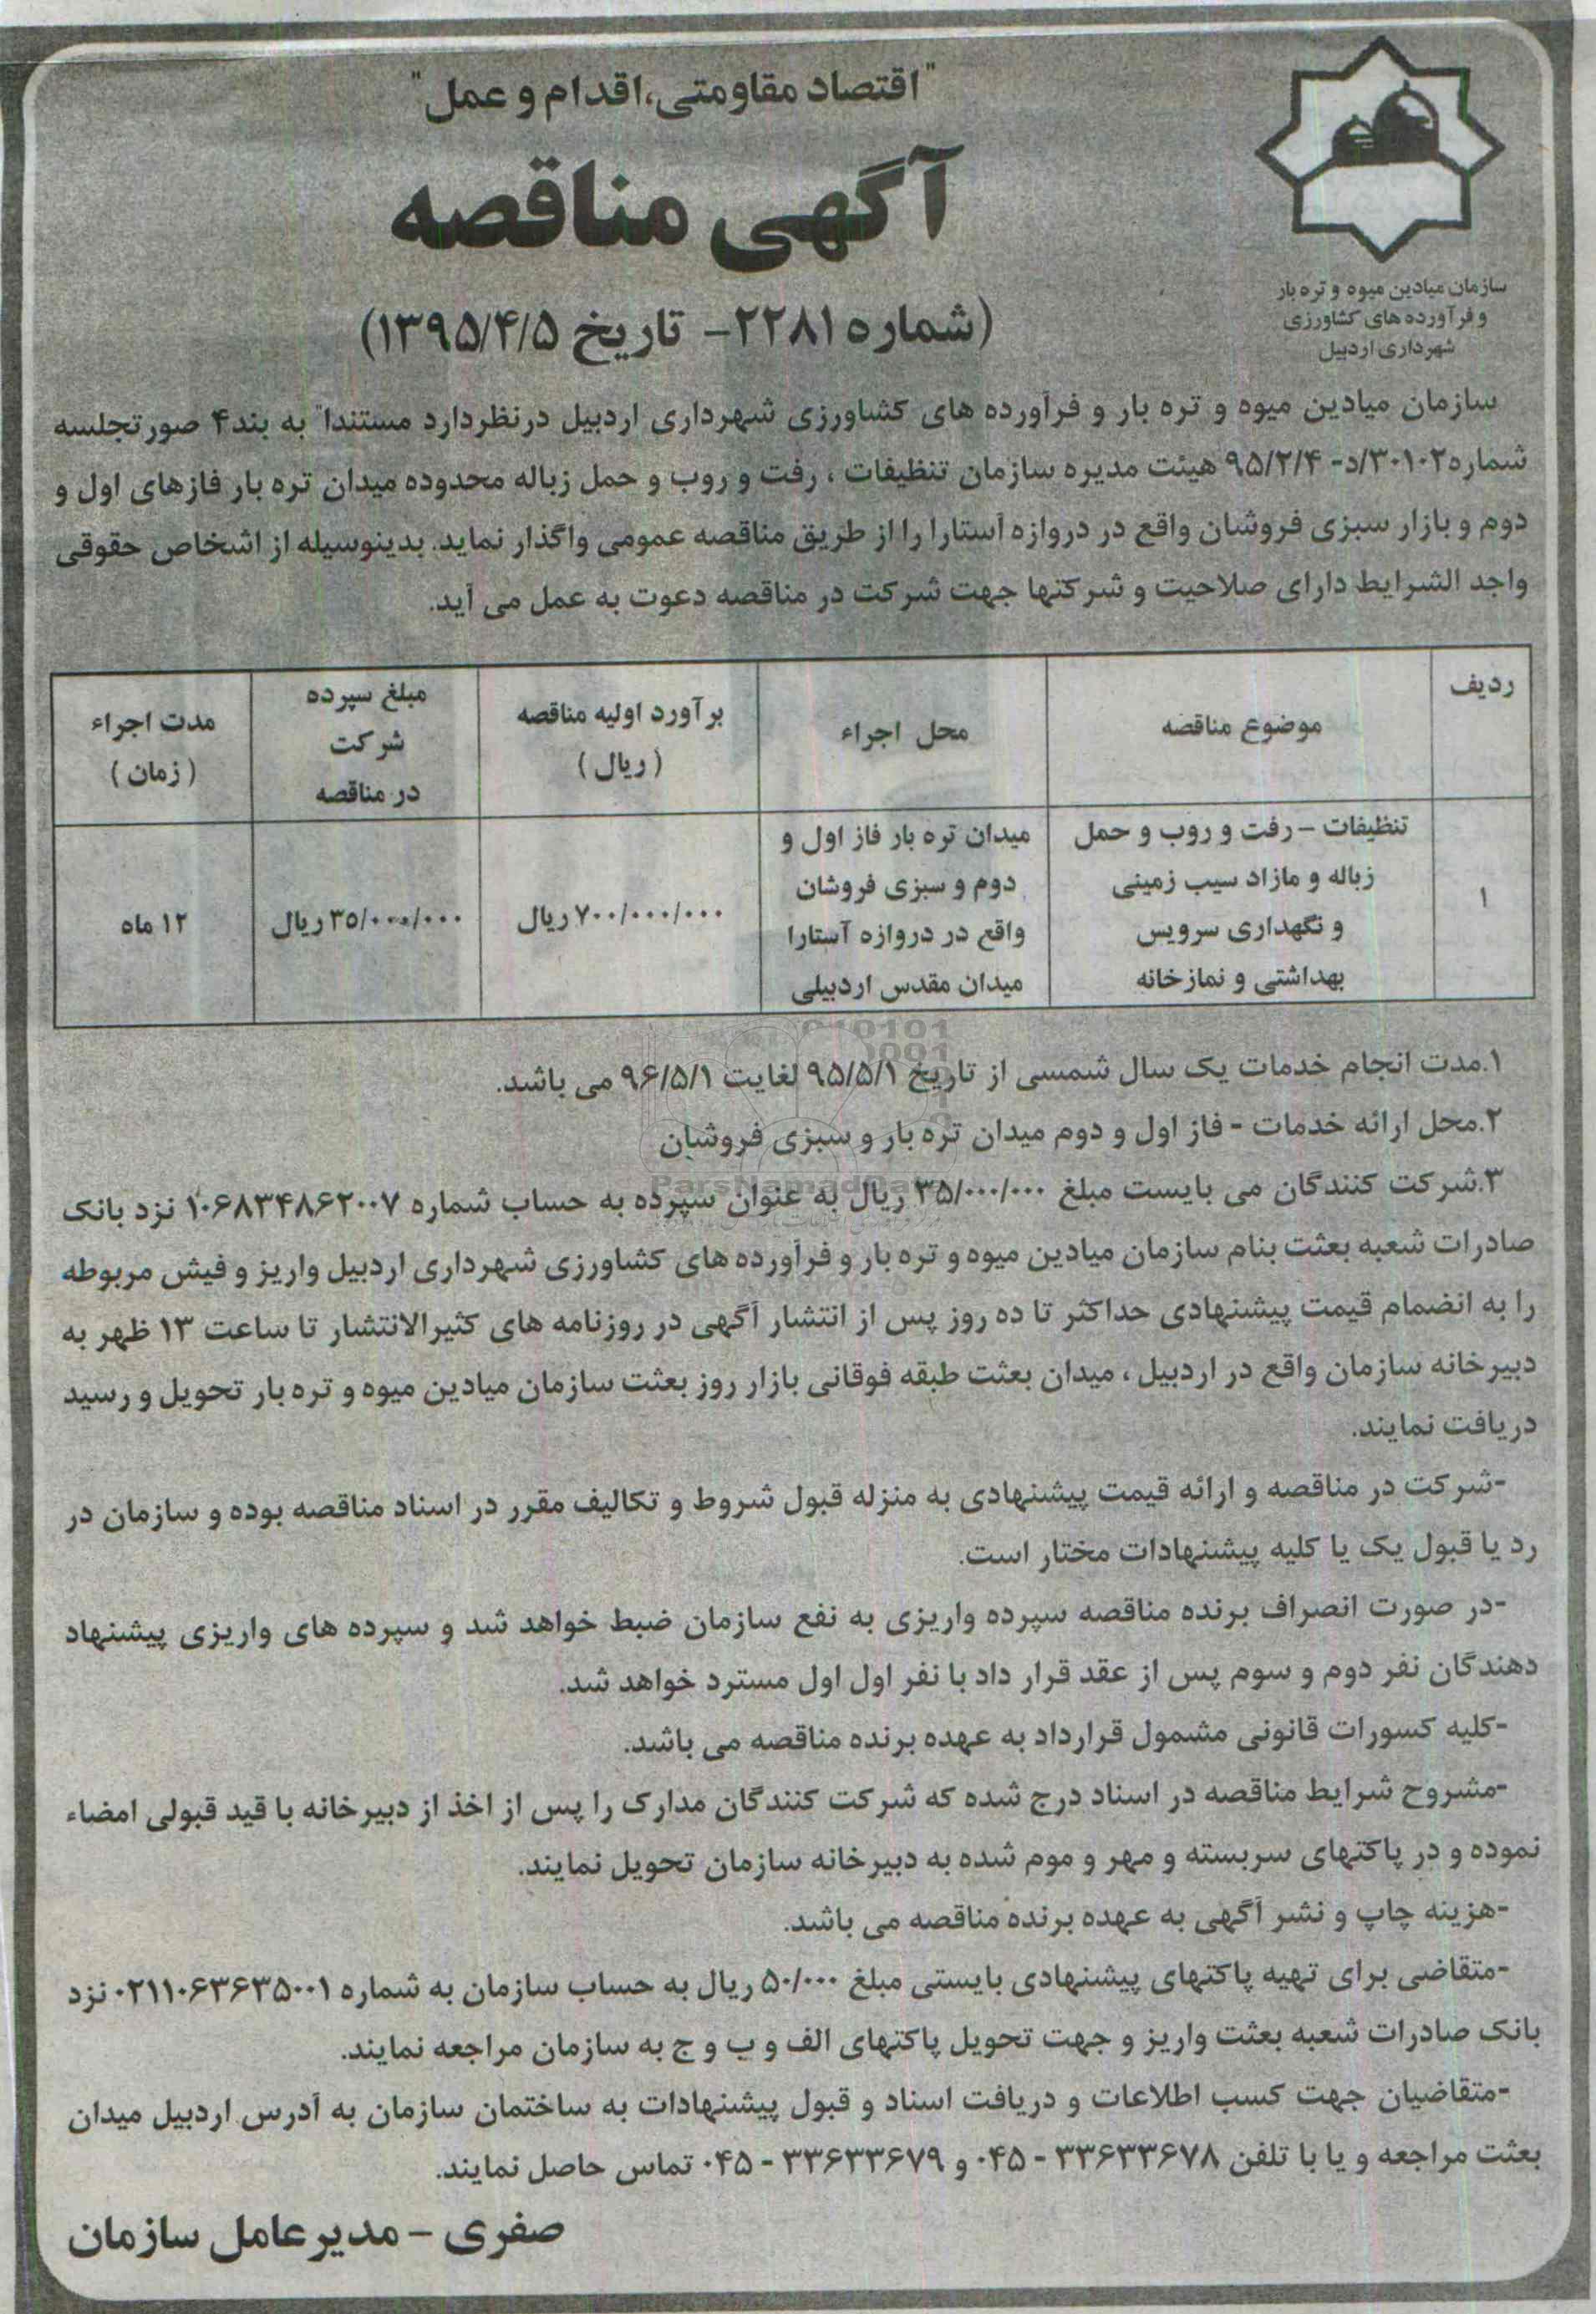 "اقتصاد مقاومتی،اقدام و عمل"
آگهی مناقصه
(شماره ۲۲۸۱- تاریخ ۱۳۹۵/۴/۵)
سازمان میادین میوه و تره بار
و فرآورده های کشاورزی
شهرداری اردبیل
سازمان میادین میوه و تره بار و فرآورده های کشاورزی شهرداری اردبیل درنظردارد مستندا" به بند۴ صورتجلسه
شماره۳۰۱۰۲/د- ۹۵/۲/۴ هیئت مدیره سازمان تنظیفات ، رفت و روب و حمل زباله محدوده میدان تره بار فازهای اول و
دوم و بازار سبزی فروشان واقع در دروازه آستارا را از طریق مناقصه عمومی واگذار نماید. بدینوسیله از اشخاص حقوقی
واجد الشرایط دارای صلاحیت و شرکتها جهت شرکت در مناقصه دعوت به عمل می آید.
ردیف
موضوع مناقصه
محل اجراء
برآورد اولیه مناقصه
(ریال)
مبلغ سپرده
شرکت
در مناقصه
مدت اجراء
(زمان)
۱
تنظیفات – رفت و روب و حمل
زباله و مازاد سیب زمینی
و نگهداری سرویس
بهداشتی و نمازخانه
میدان تره بار فاز اول و
دوم و سبزی فروشان
واقع در دروازه آستارا
میدان مقدس اردبیلی
۷۰۰/۰۰۰/۰۰۰ ریال
۳۵/۰۰۰/۰۰۰ ریال
۱۲ ماه
۱.مدت انجام خدمات یک سال شمسی از تاریخ ۹۵/۵/۱ لغایت ۹۶/۵/۱ می باشد.
۲.محل ارائه خدمات - فاز اول و دوم میدان تره بار و سبزی فروشان
۳.شرکت کنندگان می بایست مبلغ ۳۵/۰۰۰/۰۰۰ ریال به عنوان سپرده به حساب شماره ۱۰۶۸۳۴۸۶۲۰۰۷ نزد بانک
صادرات شعبه بعثت بنام سازمان میادین میوه و تره بار و فرآورده های کشاورزی شهرداری اردبیل واریز و فیش مربوطه
را به انضمام قیمت پیشنهادی حداکثر تا ده روز پس از انتشار آگهی در روزنامه های کثیرالانتشار تا ساعت ۱۳ ظهر به
دبیرخانه سازمان واقع در اردبیل ، میدان بعثت طبقه فوقانی بازار روز بعثت سازمان میادین میوه و تره بار تحویل و رسید
دریافت نمایند.
-شرکت در مناقصه و ارائه قیمت پیشنهادی به منزله قبول شروط و تکالیف مقرر در اسناد مناقصه بوده و سازمان در
رد یا قبول یک یا کلیه پیشنهادات مختار است.
-در صورت انصراف برنده مناقصه سپرده واریزی به نفع سازمان ضبط خواهد شد و سپرده های واریزی پیشنهاد
دهندگان نفر دوم و سوم پس از عقد قرار داد با نفر اول اول مسترد خواهد شد.
-کلیه کسورات قانونی مشمول قرارداد به عهده برنده مناقصه می باشد.
-مشروح شرایط مناقصه در اسناد درج شده که شرکت کنندگان مدارک را پس از اخذ از دبیرخانه با قید قبولی امضاء
نموده و در پاکتهای سربسته و مهر و موم شده به دبیرخانه سازمان تحویل نمایند.
-هزینه چاپ و نشر آگهی به عهده برنده مناقصه می باشد.
-متقاضی برای تهیه پاکتهای پیشنهادی بایستی مبلغ ۵۰/۰۰۰ ریال به حساب سازمان به شماره ۰۲۱۱۰۶۳۶۳۵۰۰۱ نزد
بانک صادرات شعبه بعثت واریز و جهت تحویل پاکتهای الف و ب و ج به سازمان مراجعه نمایند.
-متقاضیان جهت کسب اطلاعات و دریافت اسناد و قبول پیشنهادات به ساختمان سازمان به آدرس اردبیل میدان
بعثت مراجعه و یا با تلفن ۳۳۶۳۳۶۷۸ - ۰۴۵ و ۳۳۶۳۳۶۷۹ - ۰۴۵ تماس حاصل نمایند.
صفری – مدیرعامل سازمان